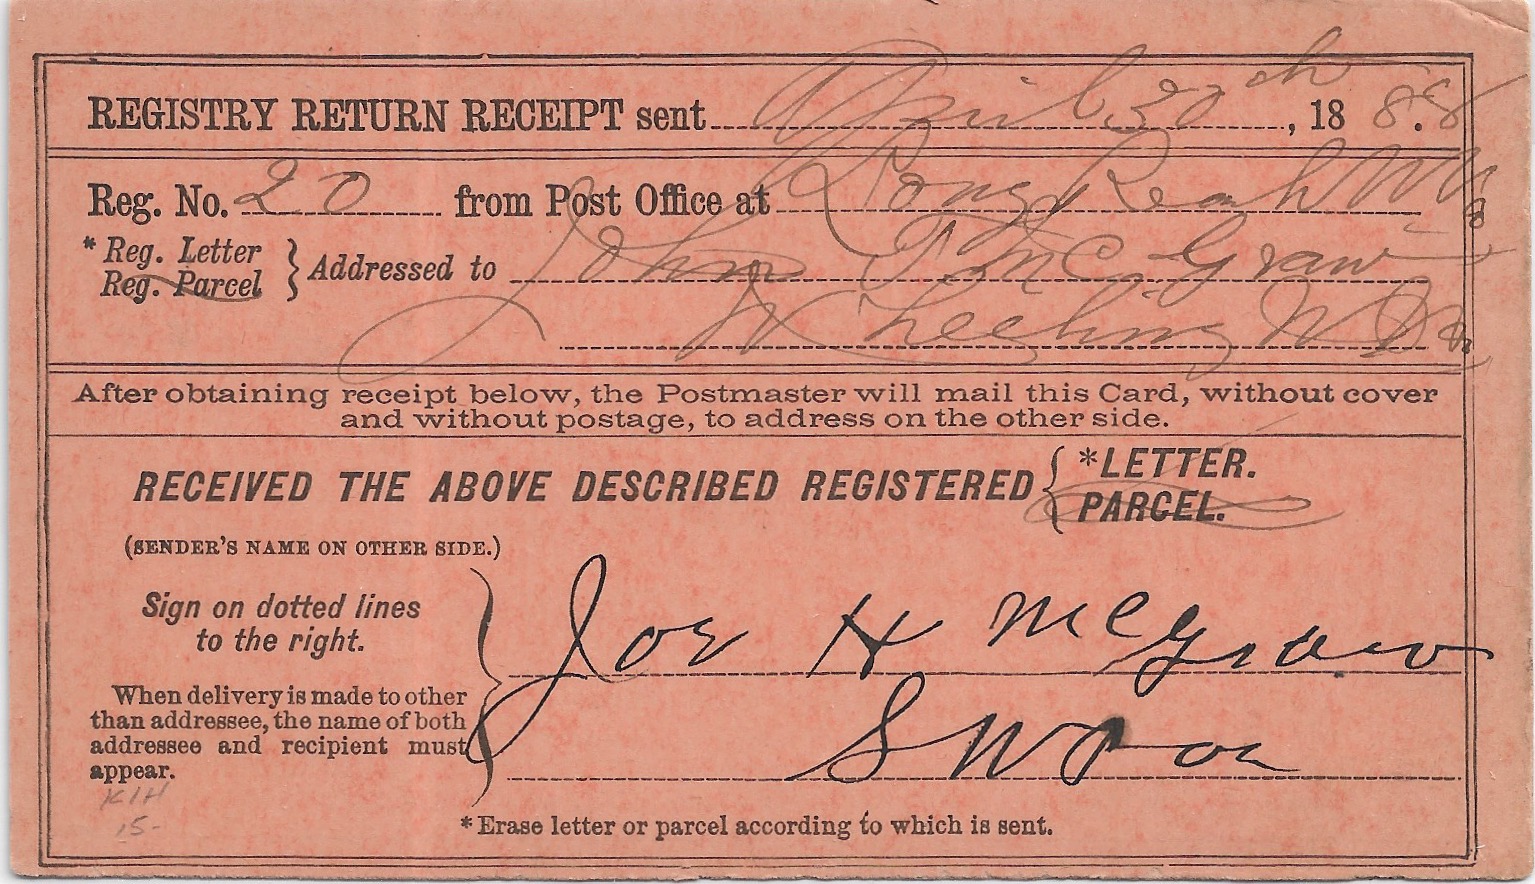 REGISTRY RETURN RECEIPT sent April 30th, 18 88.
Reg. No. 20 from Post Office at Long Reach W Va
* Reg. Letter
Reg. Parcel } Addressed to John T McGraw
Wheeling W Va
After obtaining receipt below, the Postmaster will mail this Card, without cover
and without postage, to address on the other side.
RECEIVED THE ABOVE DESCRIBED REGISTERED { *LETTER.
PARCEL.
(SENDER'S NAME ON OTHER SIDE.)
Sign on dotted lines
to the right.
Jos H McGraw
When delivery is made to other
than addressee, the name of both
addressee and recipient must
appear.
S W
KIH
15-
*Erase letter or parcel according to which is sent.